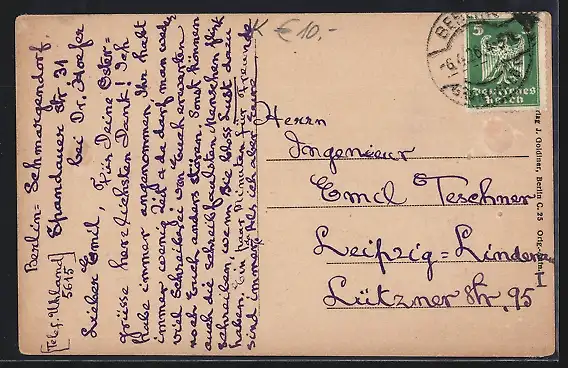 Berlin=Schmargendorf.
Spandauer Str 31
bei Dr. Hoefer
[Telef. Uhland
5615]
Lieber Emil, Für Deine Oster=
grüsse herzlichsten Dank! Ich
habe immer angenommen, Ihr habt
immer wenig Zeit & da darf man
viel Schreiberei von Euch erwarten
noch Euch anders stören. Sonst können
auch die schreibfaulsten Menschen flink
schreiben, wenn Sie bloss Lust dazu
haben. Ein paar Minuten für Freunde
sind immer
K € 10,-
BERLIN
5
Deutsches
Reich
Herrn
Ingenieur
Emil Teschner
Leipzig=Lindenau
Lützner Str. 95
J. Goldiner, Berlin C. 25